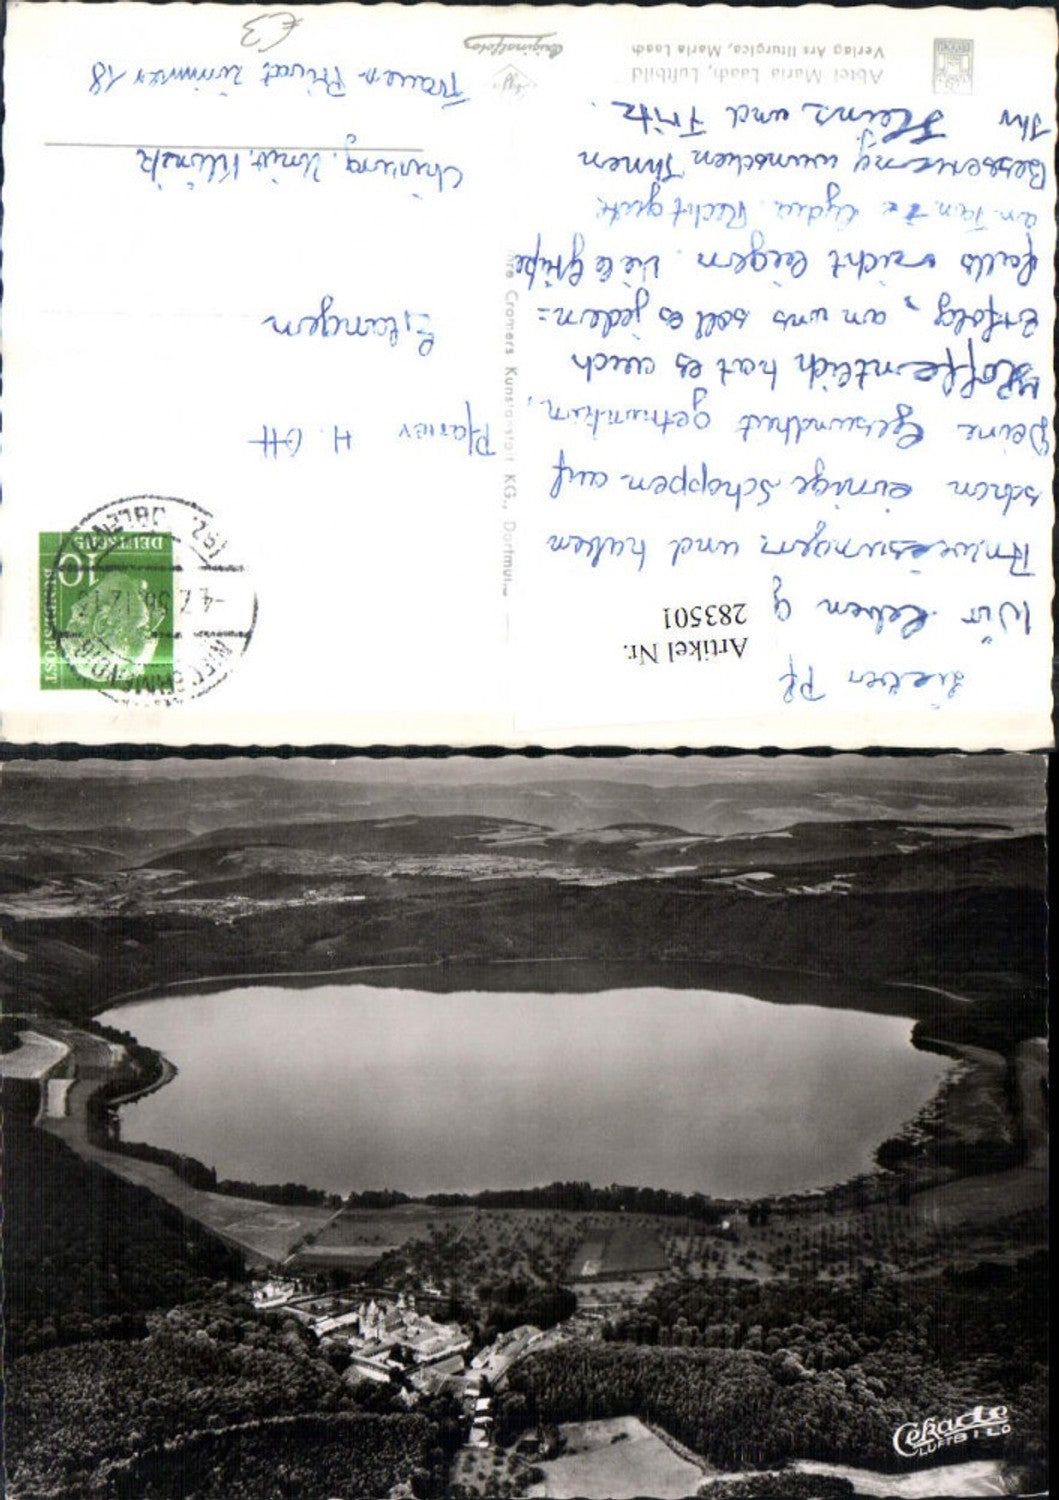 Abtei Maria Laach, Luftbild
Verlag Ars liturgica, Maria Laach
Originalfoto
€3
Lieber Pf
Wir haben g
Anweisungen und haben
schon einige Schoppen auf
Deine Gesundheit getrunken,
Hoffentlich hat es auch
Erfolg, an uns soll es jeden=
falls nicht liegen. Viele Grüße
an Tante Lydia. Recht gute
Besserung wünschen Ihnen
Ihr Heinz und Fritz.
Artikel Nr.
283501
Cramers Kunstanstalt KG., Dortmund
Pfarrer H. Ott
Erlangen
Chirurg. Univ. Klinik
Frauen Privat Zimmer 18
DEUTSCHE
BUNDESPOST
10
NIEDERMENDIG
-4.7.56.12-13
Cekade
LUFTBILD